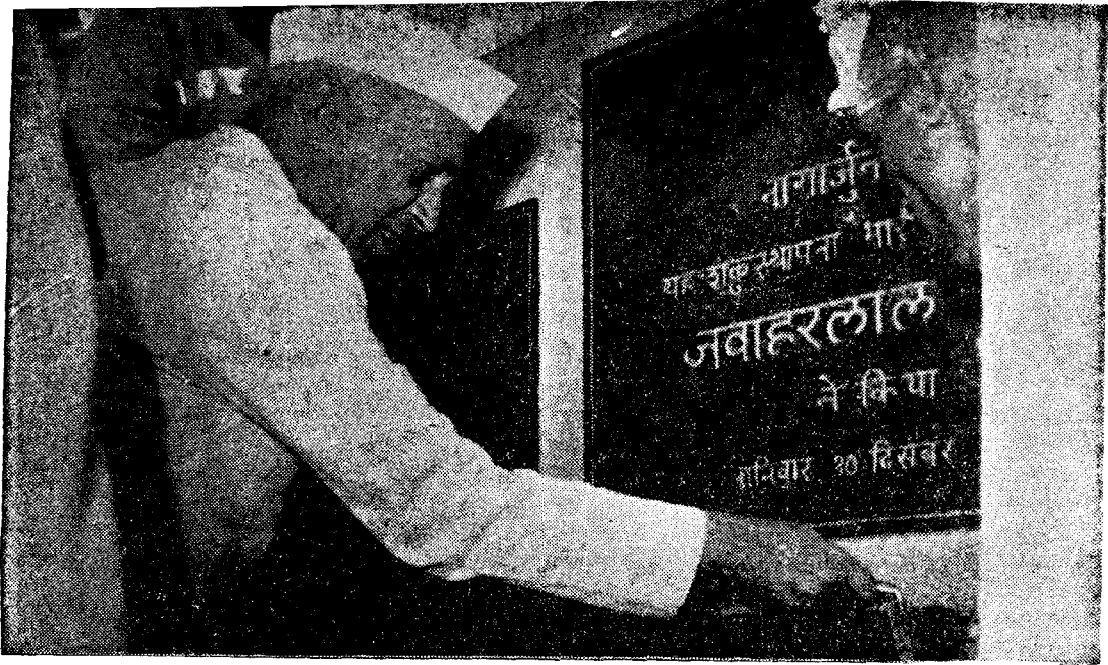 नागार्जुन
स्थापना
जवाहरलाल
ने किया
शनिवार १० दिसंबर